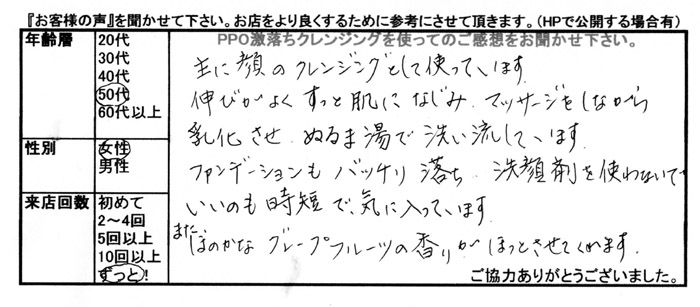 『お客様の声』を聞かせて下さい。お店をより良くするために参考にさせて頂きます。（HPで公開する場合有）
年齢層
20代
30代
40代
50代
60代以上
性別
女性
男性
来店回数
初めて
2～4回
5回以上
10回以上
ずっと！
PPO激落ちクレンジングを使ってのご感想をお聞かせ下さい。
主に顔のクレンジングとして使っています。
伸びがよくすっと肌になじみ、マッサージをしながら
乳化させ、ぬるま湯で洗い流しています。
ファンデーションもバッチリ落ち、洗顔剤を使わないで
いいのも時短で、気に入っています。
また、ほのかなグレープフルーツの香りがほっとさせてくれます。
ご協力ありがとうございました。